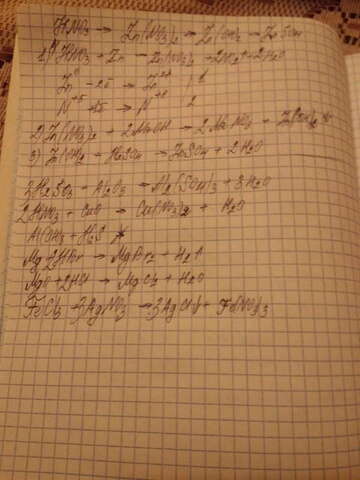 HNO3 → Zn(NO3)2 → Zn(OH)2 → ZnSO4
1) 4HNO3 + Zn → Zn(NO3)2 + 2NO2↑ + 2H2O
Zn⁰ - 2e → Zn⁺² | 1
N⁺⁵ + 1e → N⁺⁴ | 2
2) Zn(NO3)2 + 2NaOH → 2NaNO3 + Zn(OH)2
3) Zn(OH)2 + H2SO4 → ZnSO4 + 2H2O
3H2SO4 + Al2O3 → Al2(SO4)3 + 3H2O
2HNO3 + CaO → Ca(NO3)2 + H2O
Al(OH)3 + H2S
Mg + 2HBr → MgBr2 + H2↑
MgO + 2HCl → MgCl2 + H2O
FeCl3 + 3AgNO3 → 3AgCl↓ + Fe(NO3)3